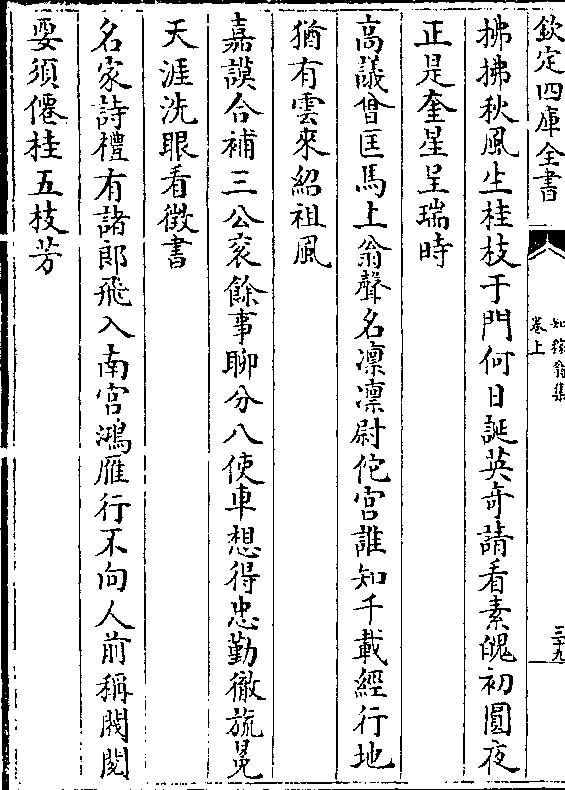 欽定四庫全書
知稼翁集
卷上
三十九
拂拂秋風生桂枝于門何日誕英奇請看素魄初圓夜
正是奎星呈瑞時
高議曾匡馬上翁聲名凛凛尉佗宫誰知千載經行地
猶有雲來紹祖風
嘉謨合補三公衮餘事聊分八使車想得忠勤徹旒冕
天涯洗眼看徴書
名家詩禮有諸郎飛入南宫鴻雁行不向人前稱閥閲
要須僊桂五枝芳